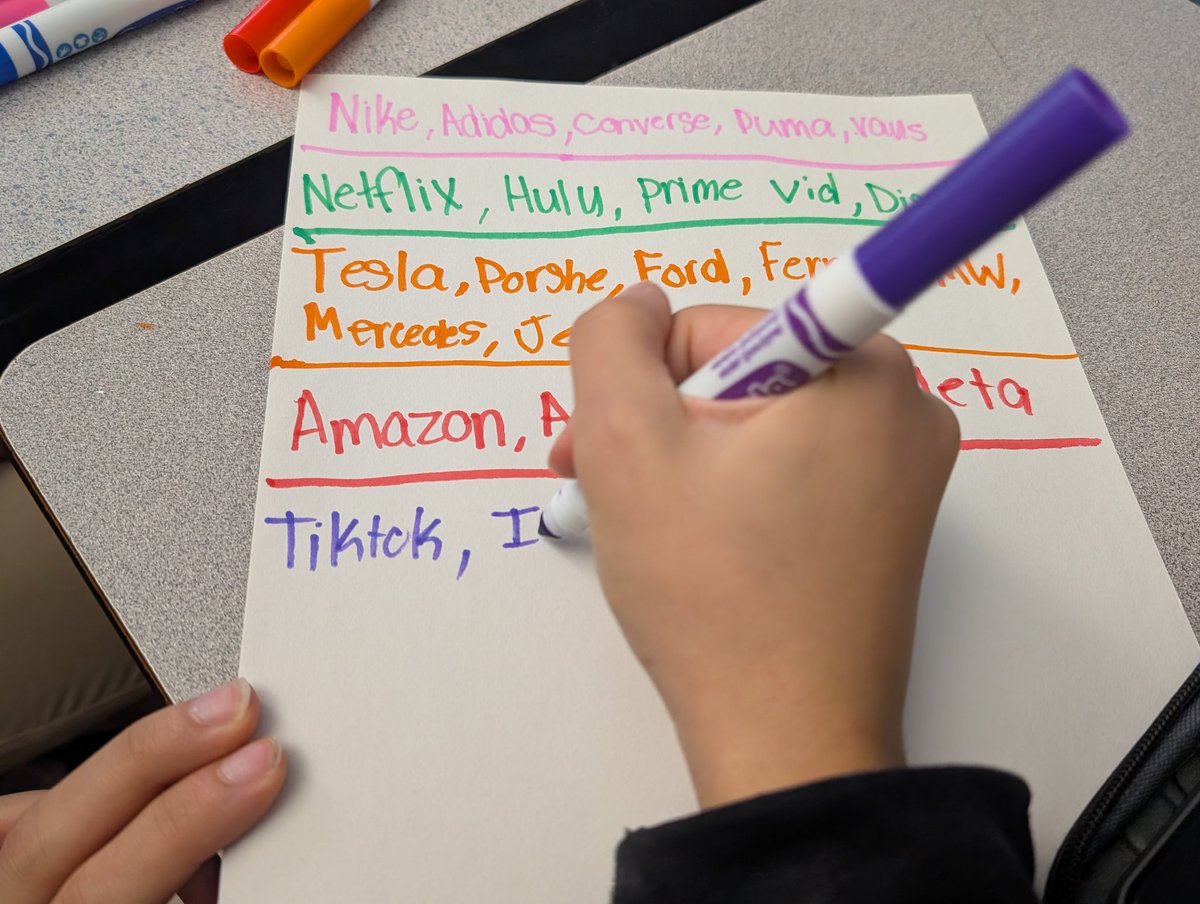 Nike, Adidas, Converse, Puma, vans
Netflix, Hulu, Prime Vid,
Tesla, Porshe, Ford,
Mercedes,
Amazon,
Tiktok, I